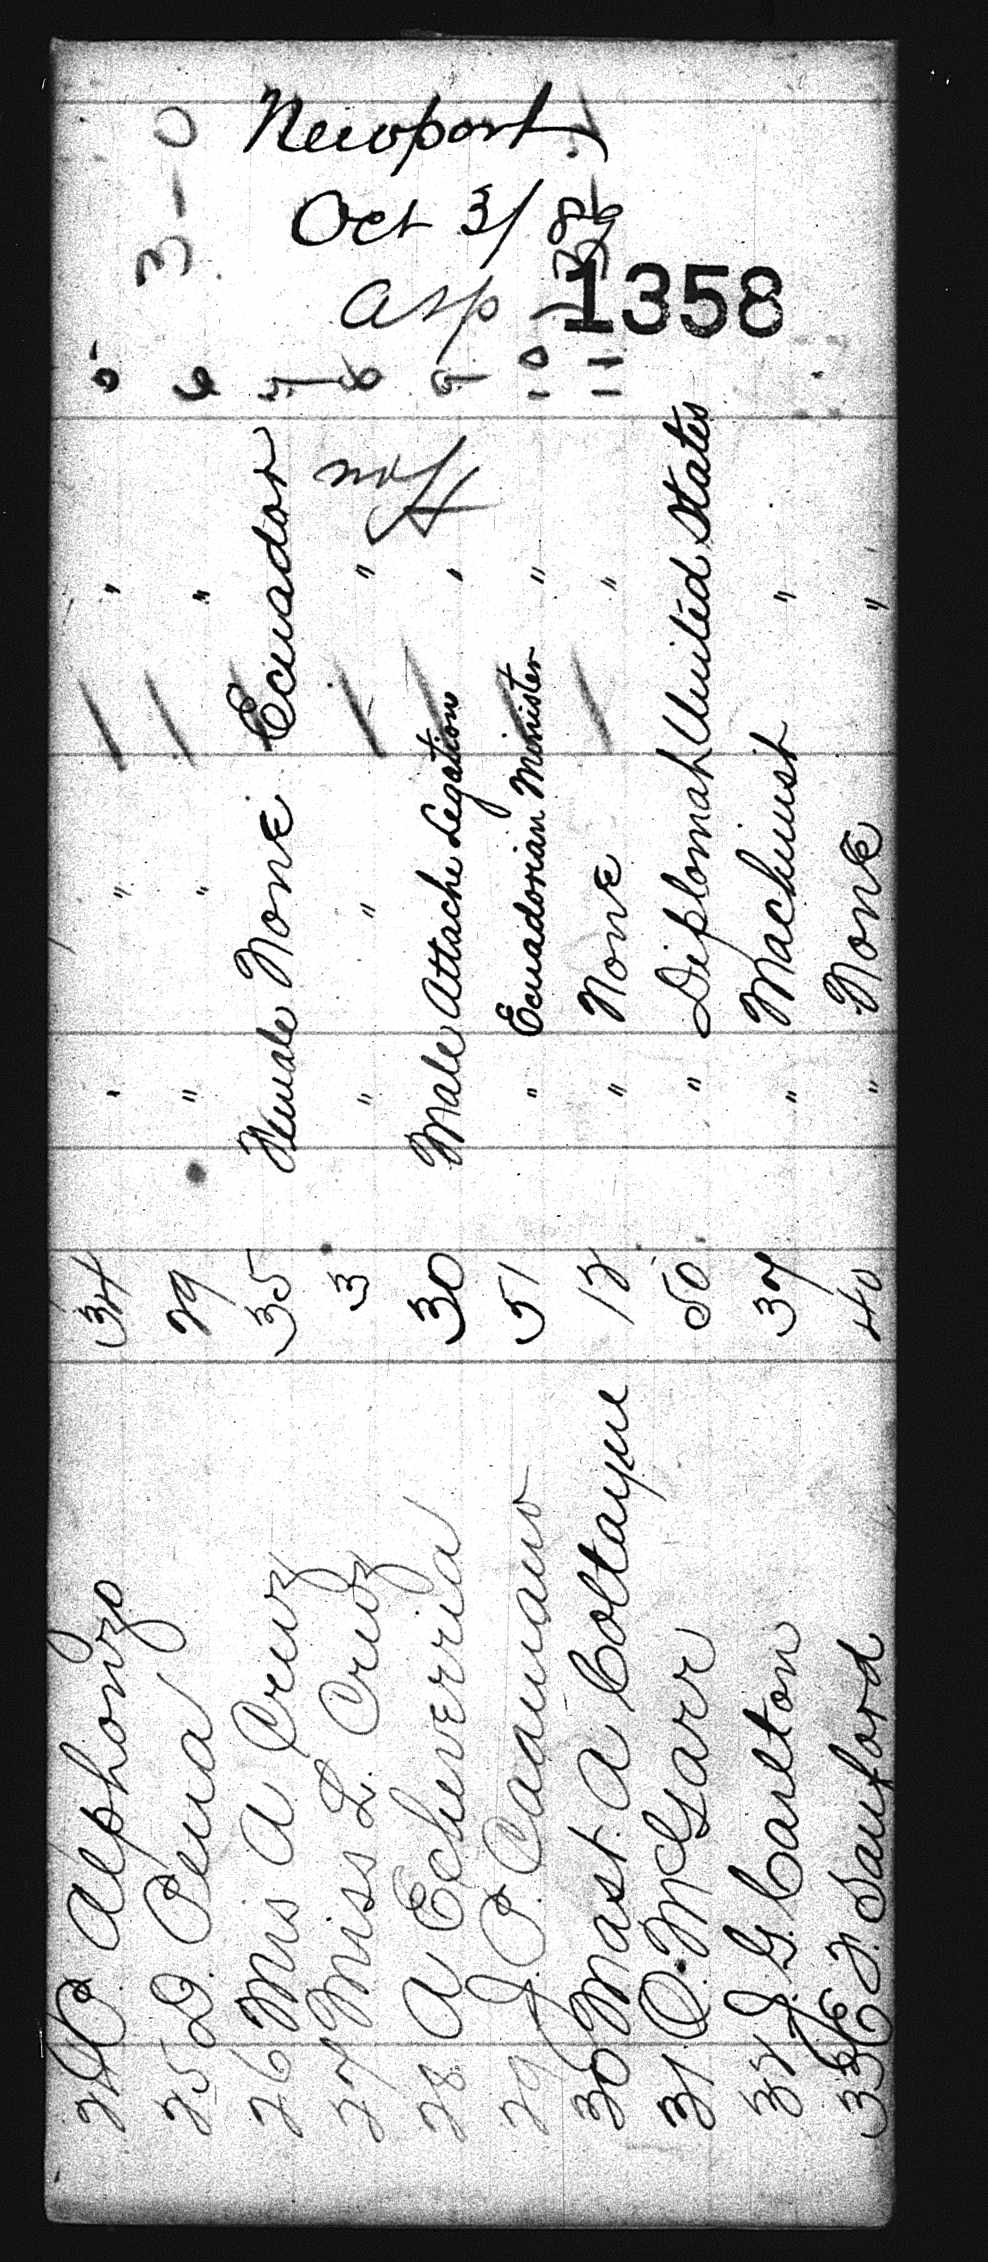 Newport
Oct 31/89
Asp
1358
3-0
5
6
7
8
9
10
11
24 P. Alphonzo 34 " " "
25 D. Pena 29 " " "
26 Mrs A Cruz 35 Female None Ecuador
27 Miss L. Cruz 3 " " "
28 A Echeverria 30 Male Attache Legation "
29 J. P. Caamano 51 " Ecuadorian Minister "
30 Mast. A Coltayne 12 " None "
31 O. McGarr 50 " Diplomat United States
32 J. G. Carlton 37 " Machinist "
33 E. F. Sanford 40 " None "